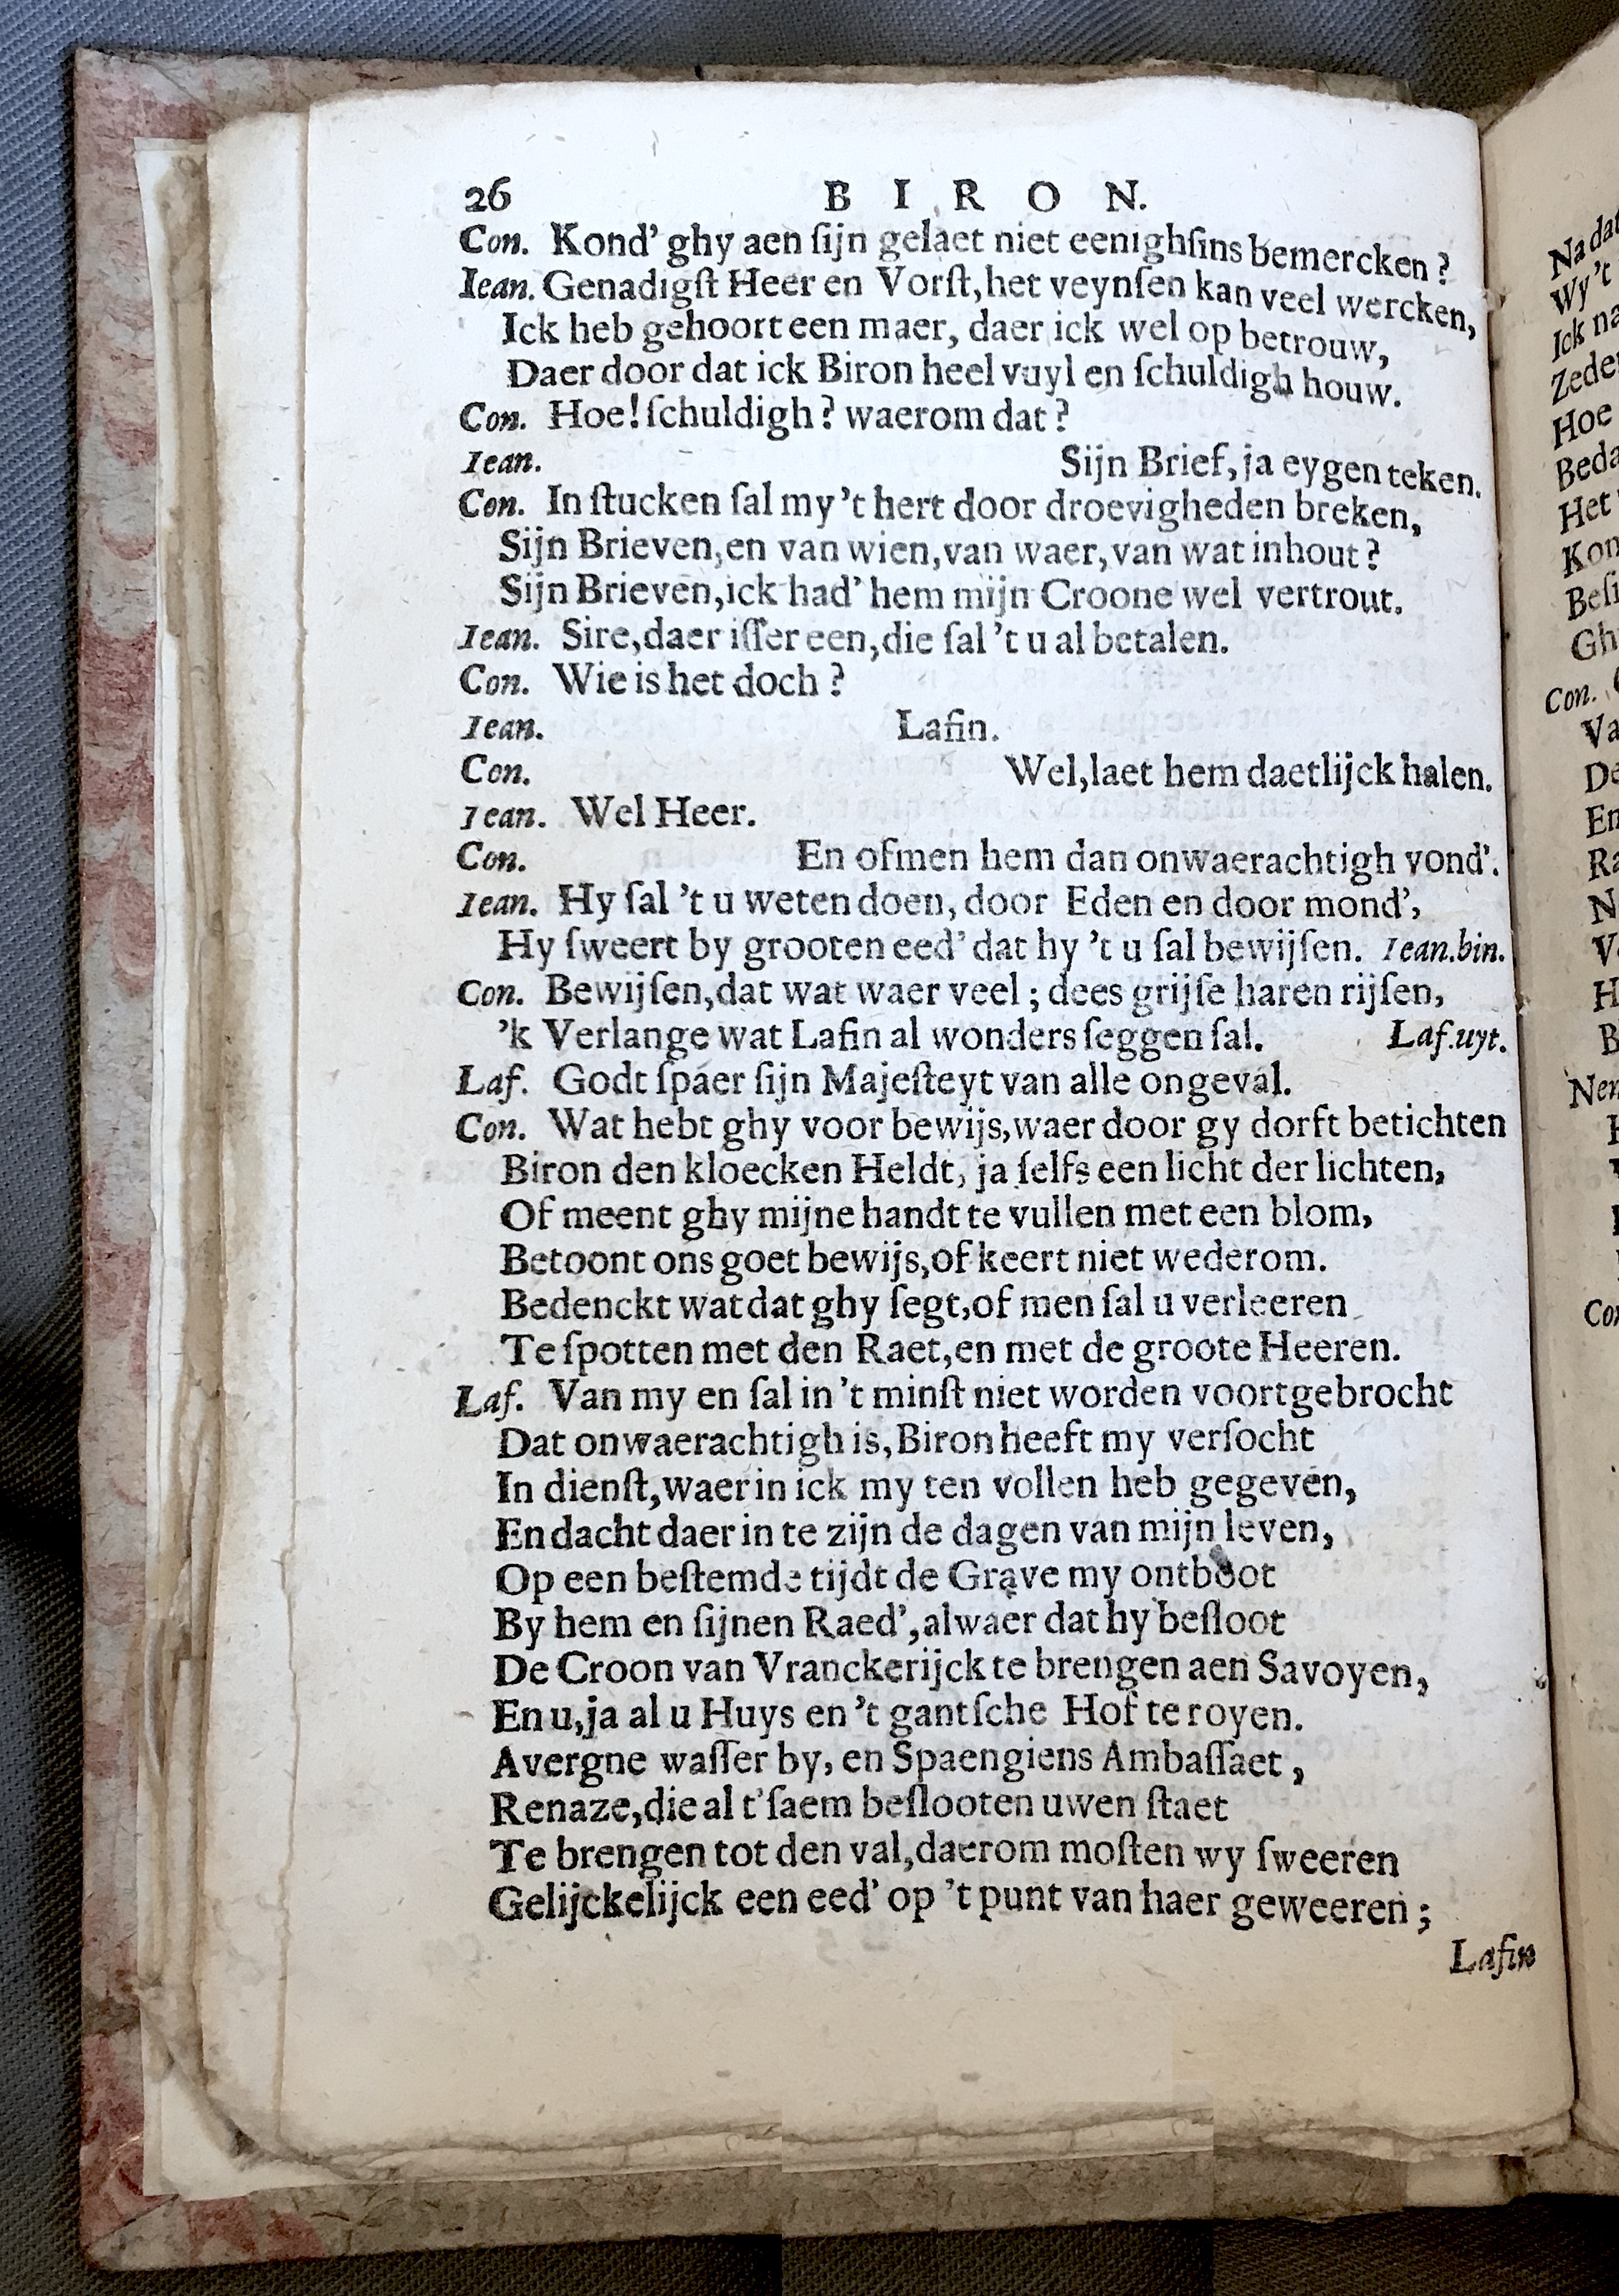 26 BIRON.
Con. Kond' ghy aen ſijn gelaet niet eenighſins bemercken?
Iean. Genadigſt Heer en Vorſt, het veynſen kan veel wercken,
Ick heb gehoort een maer, daer ick wel op betrouw,
Daer door dat ick Biron heel vuyl en ſchuldigh houw.
Con. Hoe! ſchuldigh? waerom dat?
Iean. Sijn Brief, ja eygen teken.
Con. In ſtucken ſal my 't hert door droevigheden breken,
Sijn Brieven, en van wien, van waer, van wat inhout?
Sijn Brieven, ick had' hem mijn Croone wel vertrout.
Iean. Sire, daer iſſer een, die ſal 't u al betalen.
Con. Wie is het doch?
Iean. Lafin.
Con. Wel, laet hem daetlijck halen.
Iean. Wel Heer.
Con. En ofmen hem dan onwaerachtigh vond'.
Iean. Hy ſal 't u weten doen, door Eden en door mond',
Hy ſweert by grooten eed' dat hy 't u ſal bewijſen. Iean. bin.
Con. Bewijſen, dat wat waer veel; dees grijſe haren rijſen,
'k Verlange wat Lafin al wonders ſeggen ſal. Laf. uyt.
Laf. Godt ſpaer ſijn Majeſteyt van alle ongeval.
Con. Wat hebt ghy voor bewijs, waer door gy dorft betichten
Biron den kloecken Heldt, ja ſelfs een licht der lichten,
Of meent ghy mijne handt te vullen met een blom,
Betoont ons goet bewijs, of keert niet wederom.
Bedenckt wat dat ghy ſegt, of men ſal u verleeren
Te ſpotten met den Raet, en met de groote Heeren.
Laf. Van my en ſal in 't minſt niet worden voortgebrocht
Dat onwaerachtigh is, Biron heeft my verſocht
In dienſt, waer in ick my ten vollen heb gegeven,
En dacht daer in te zijn de dagen van mijn leven,
Op een beſtemde tijdt de Grave my ontboot
By hem en ſijnen Raed', alwaer dat hy beſloot
De Croon van Vranckerijck te brengen aen Savoyen,
En u, ja al u Huys en 't gantſche Hof te royen.
Avergne waſſer by, en Spaengiens Ambaſſaet,
Renaze, die al t'ſaem beſlooten uwen ſtaet
Te brengen tot den val, daerom moſten wy ſweeren
Gelijckelijck een eed' op 't punt van haer geweeren;
Lafin
Na dat
Wy 't
Ick na
Zede
Hoe
Beda
Het
Kon
Beſi
Gh
Con.
Va
De
En
Ra
N
V
H
B
Nem
Con